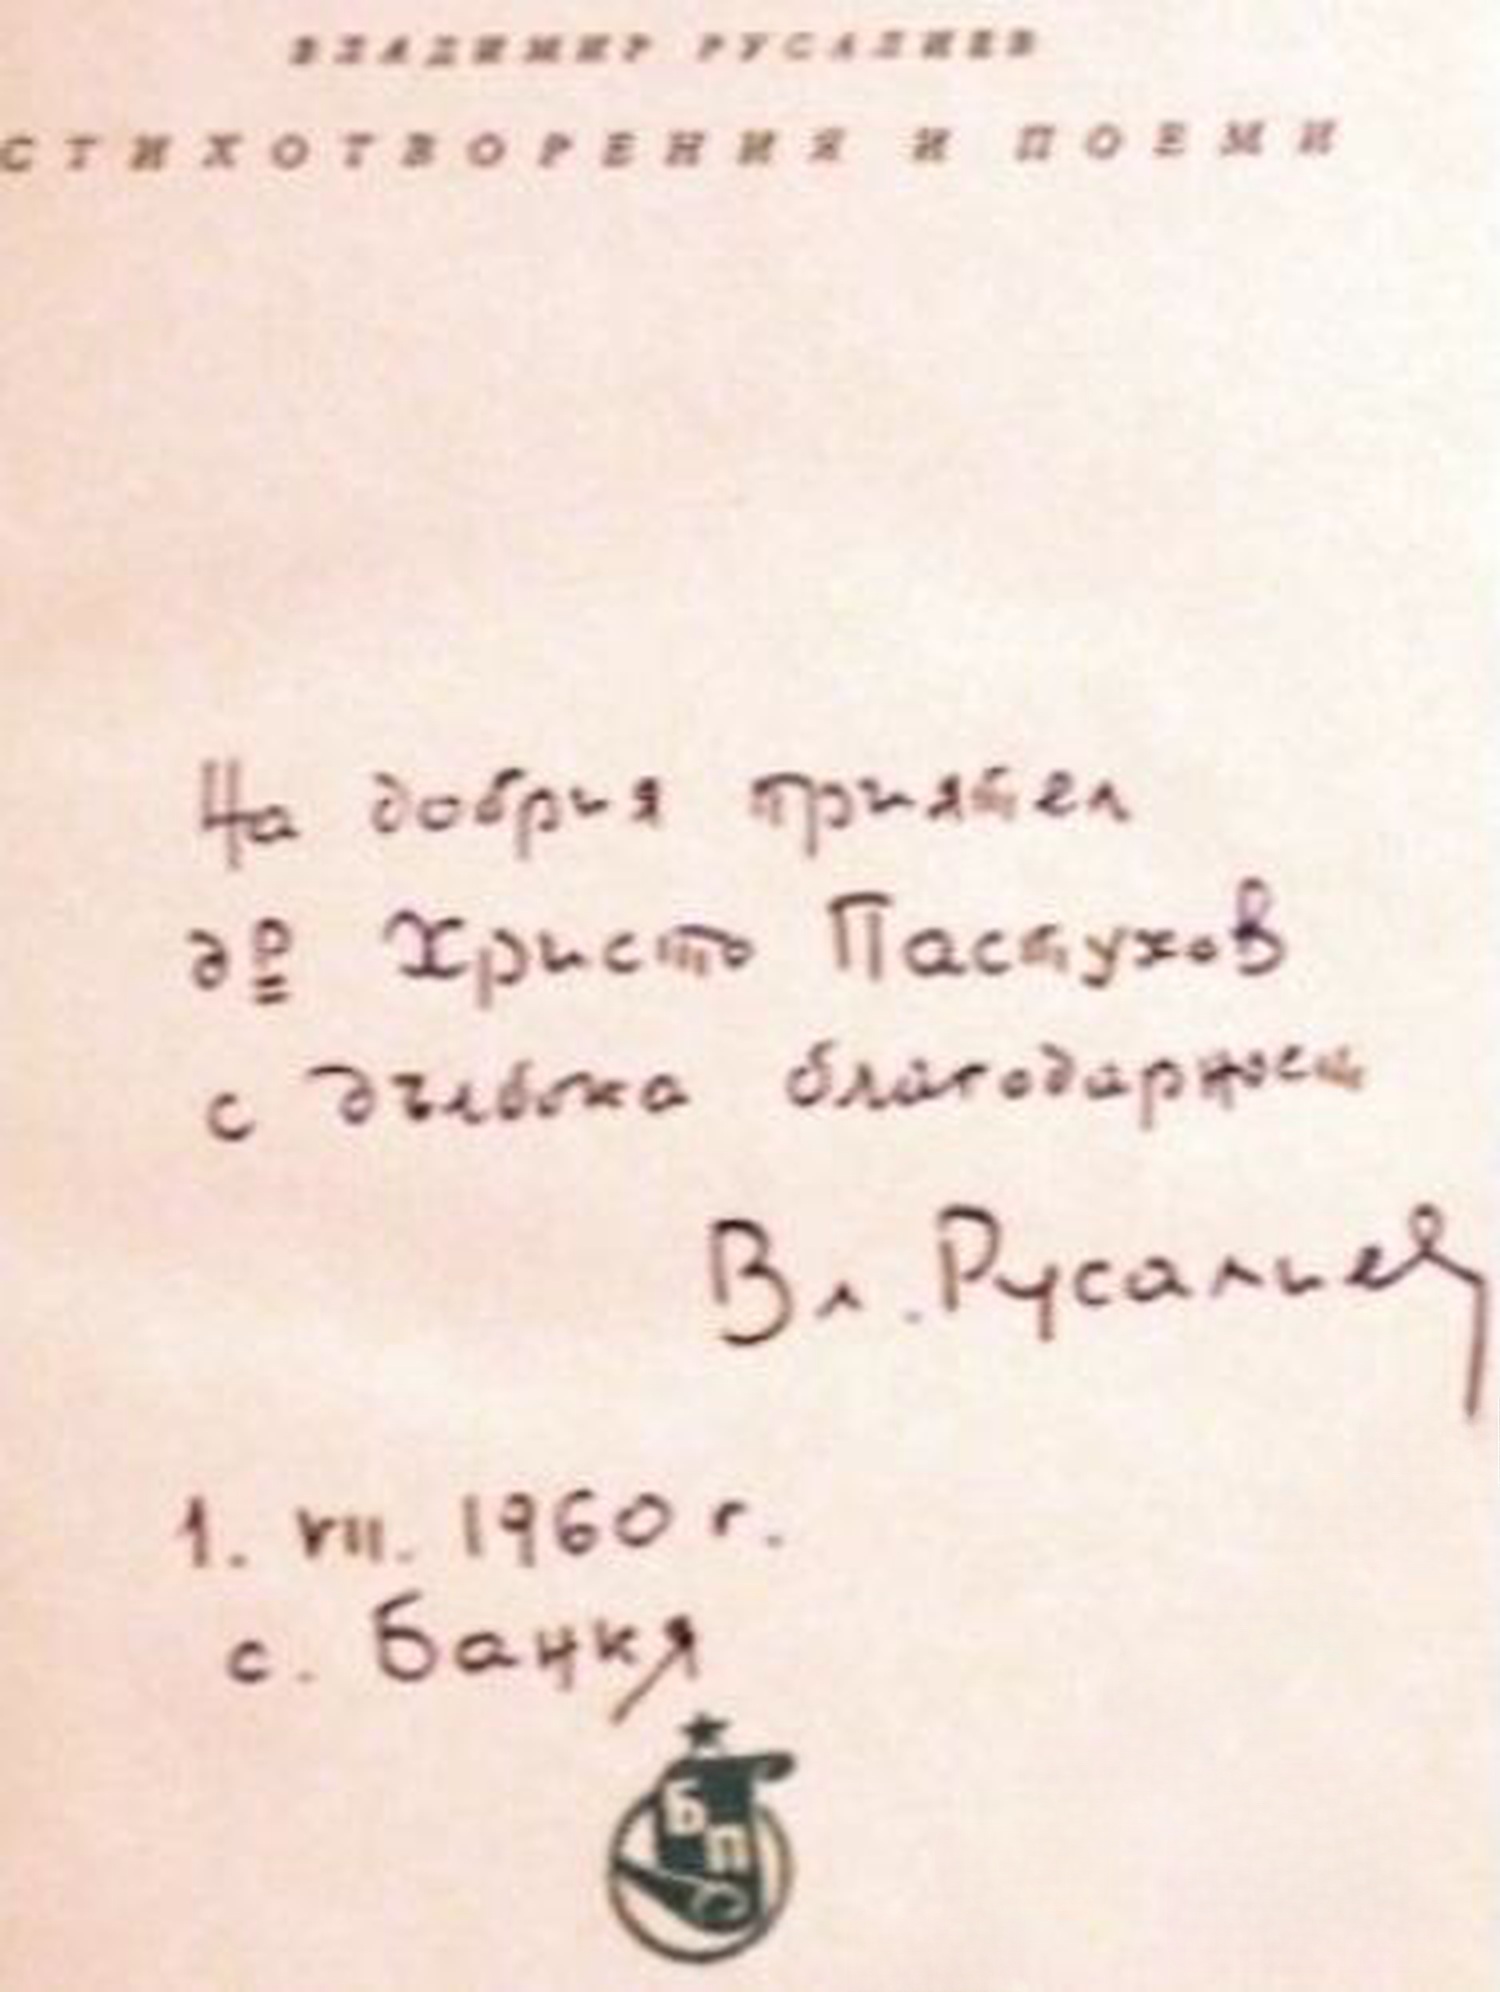 ВЛАДИМИР РУСАЛИЕВ
СТИХОТВОРЕНИЯ И ПОЕМИ
На добрия приятел
др Христо Пастухов
с дълбока благодарност
Вл. Русалиев
1. VII. 1960 г.
с. Банкя
БП